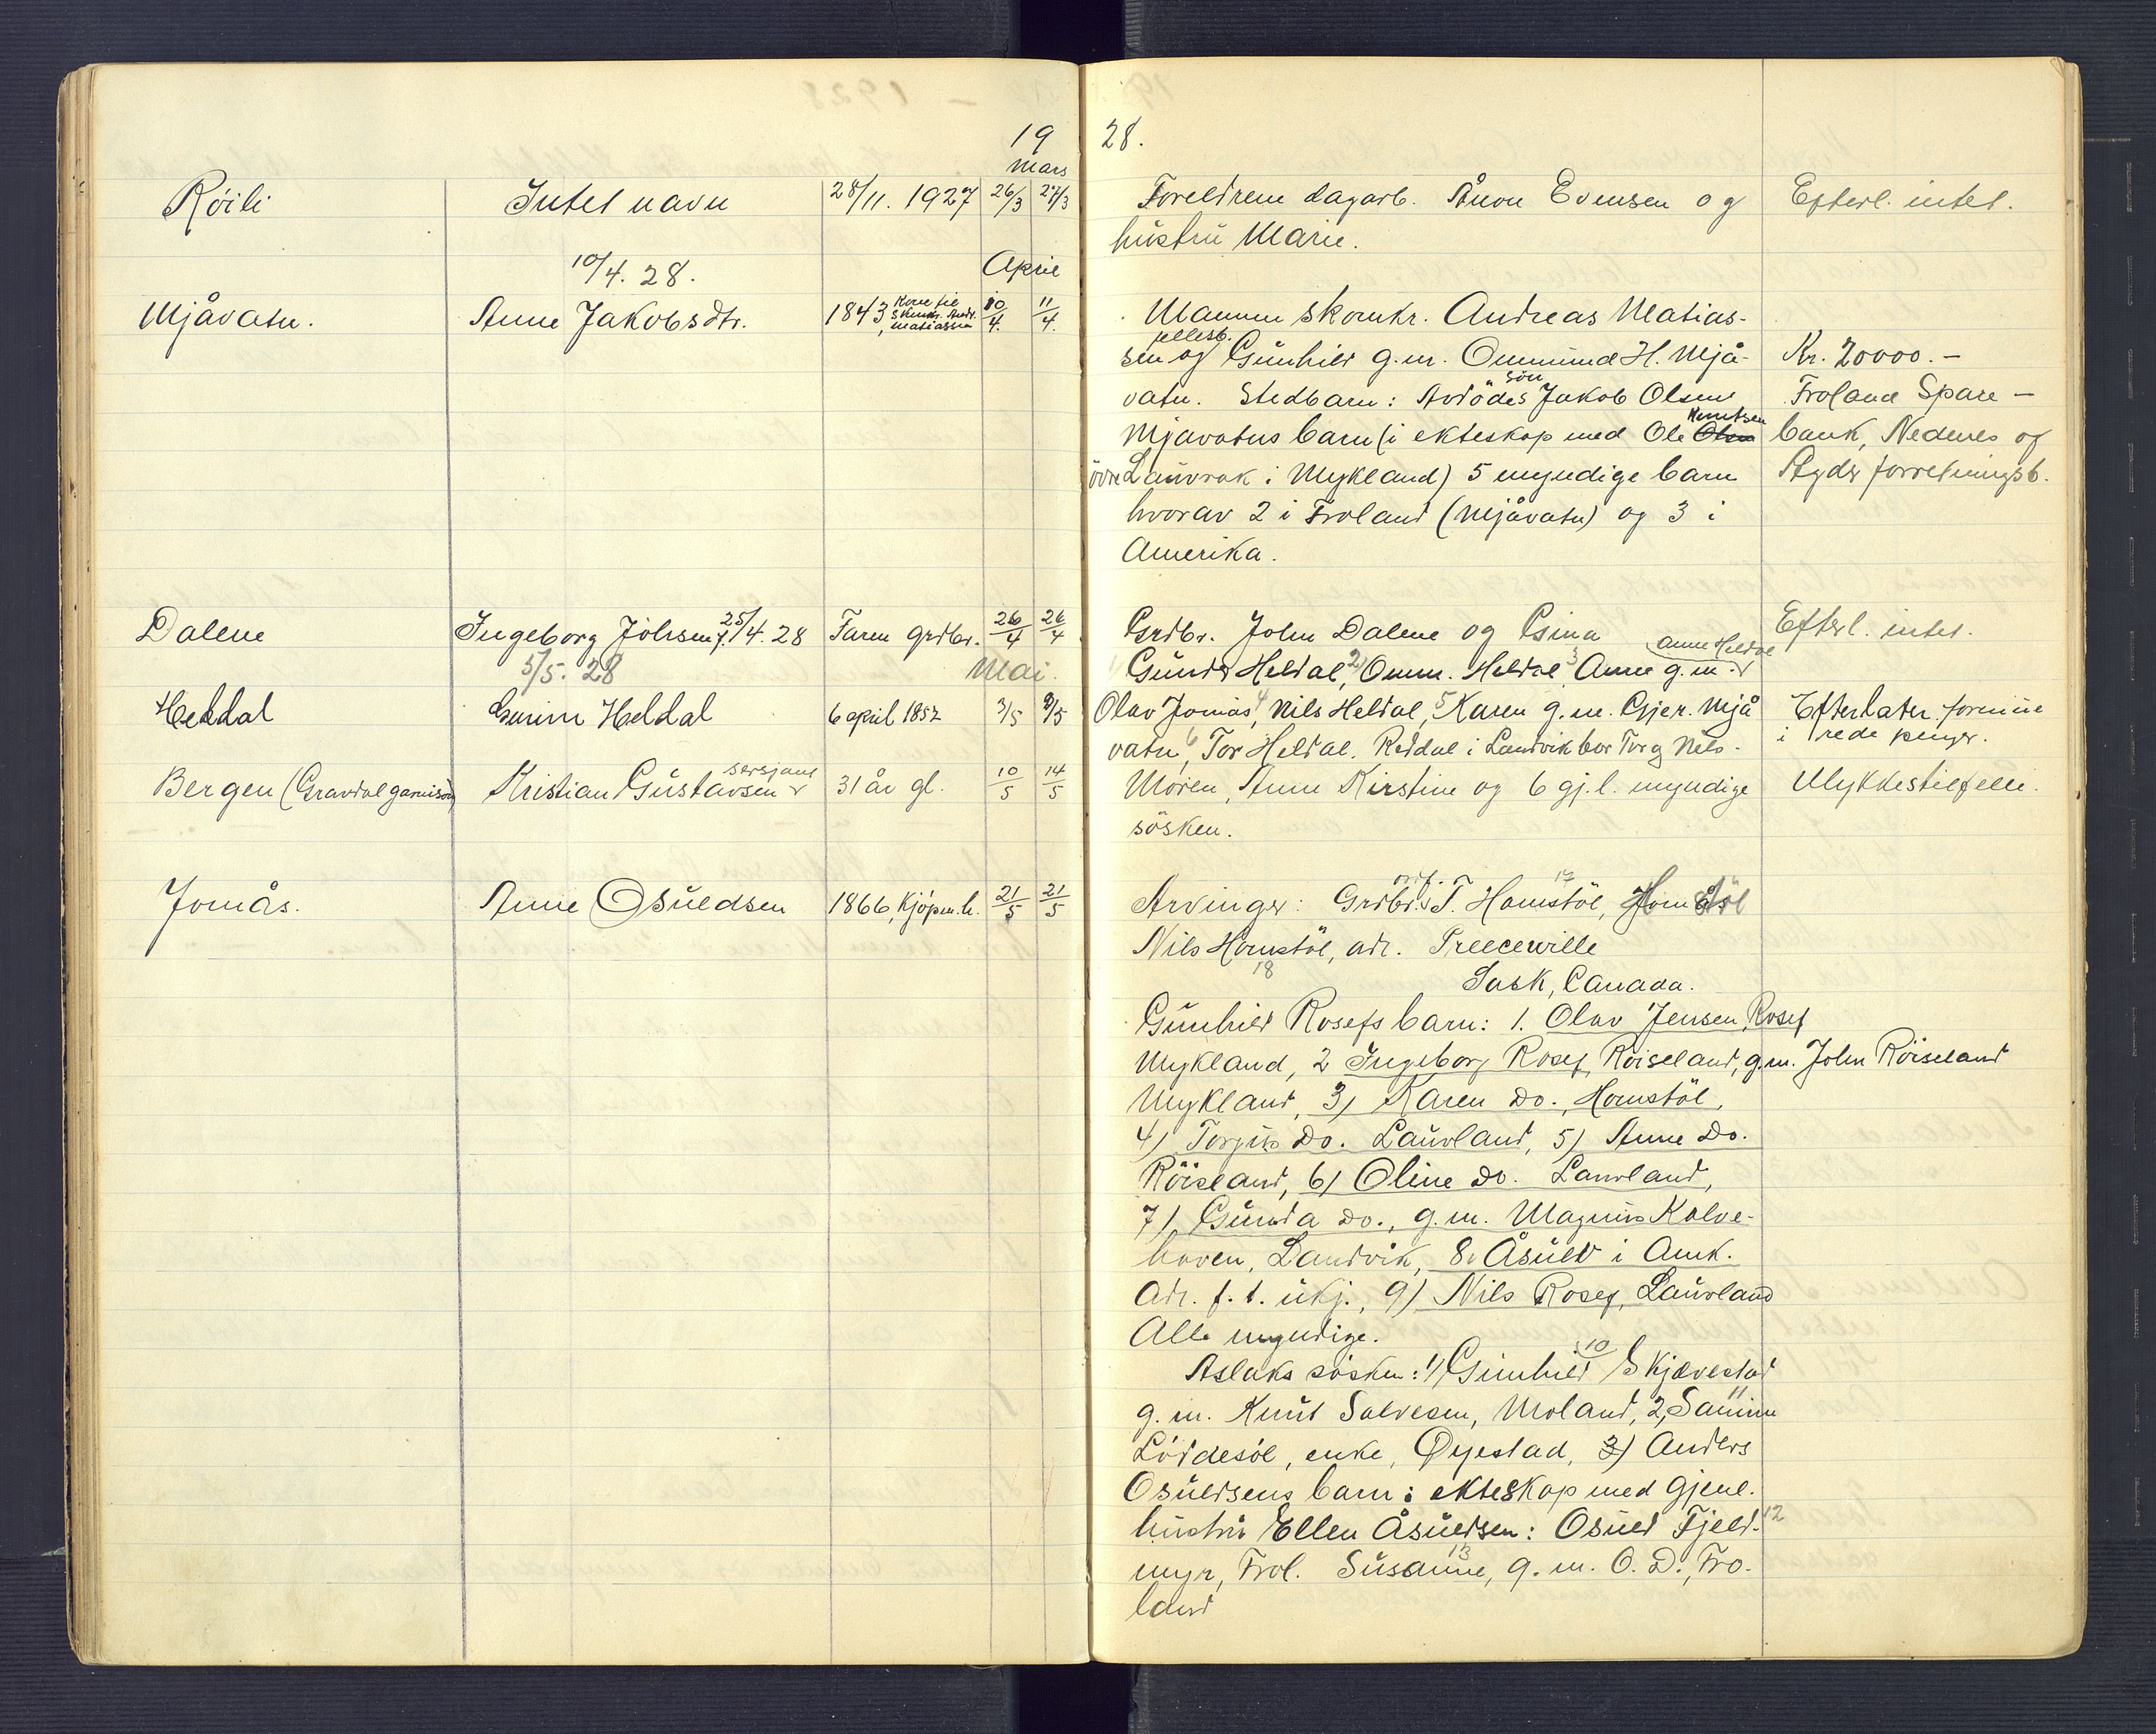 19 28.
mars
Röili Intet navn 28/11. 1927 26/3 27/3 Foreldrene dagarb. Ånon Evensen og Efterl. intet.
hustru Marie.
10/4. 28. April
Mjåvatn. Anne Jakobsdtr. 1843 Kone til skomkr. Andr. Matiassen 10/4. 11/4. Mannen skomkr. Andreas Matias-
sen og fellesb. Gunhild g.m. Ommund H. Mjå- Kr. 20000.-
vatn. Stedbarn: Avdödes sön Jakob Olsens Froland Spare-
Mjåvatns barn (i ekteskap med Ole Knutsen bank, Nedenes og
övre Lauvrak i Mykland) 5 myndige barn Agder forretningsb.
hvorav 2 i Froland (Mjåvatn) og 3 i
Amerika.
Dalene Ingeborg Johsen 25/4. 28 Faren grdbr. 26/4 26/4 Grdbr. John Dalene og Gina Efterl. intet.
5/5. 28 Mai. Gunder Heldal, 2 Omm. Heldal 3 Anne g.m. Anne Heldal
Heddal Gunim Heldal 6 april 1852 3/5 8/5 Olav Jomås, 4 Nils Heldal, 5 Karen g.m. Gjer. Mjå Efterlater formue
vatn, 6 Tor Heldal. Reddal i Landvik bor Tor og Nils. i rede penger.
Bergen (Gravdal garnison) Kristian Gustavsen sersjant 31 år gl. 10/5 14/5 Moren, Anne Kirstine og 6 gj.l. myndige Ulykkestilfelle.
sösken.
Jomås. Anne Osuldsen 1866, Kjöpm.h. 21/5 21/5 Arvinger: Grdbr. T. Homstöl, 17
Nils Homstöl, adr. Preeceville
18
Sask, Canada.
Gunhild Rosefs barn: 1. Olav Jensen Rosef
Mykland, 2 Ingeborg Rosef, Röiseland, g.m. John Röiseland
Mykland, 3) Karen Do., Homstöl,
4) Torjus Do. Lauvland, 5) Anne Do.
Röiseland, 6) Oline Do. Lauvland,
7) Gunda Do., g.m. Magnus Kalve-
haven, Landvik, 8. Åsuld i Amk.
Adr. f.t. ukj., 9) Nils Rosef, Lauvland
Alle myndige.
Aslaks sösken: 1) Gunhild 10 Skjævestad
g.m. Knut Salvesen, Moland, 2, 11
Löddesöl, enke, Öyestad, 3) Anders
Osuldsens barn: ekteskap med gjenl.
hustru Ellen Åsuldsen: Osuld Fjeld- 12
myr, Frol. Susanne, 13 g.m. O. D., Fro-
land